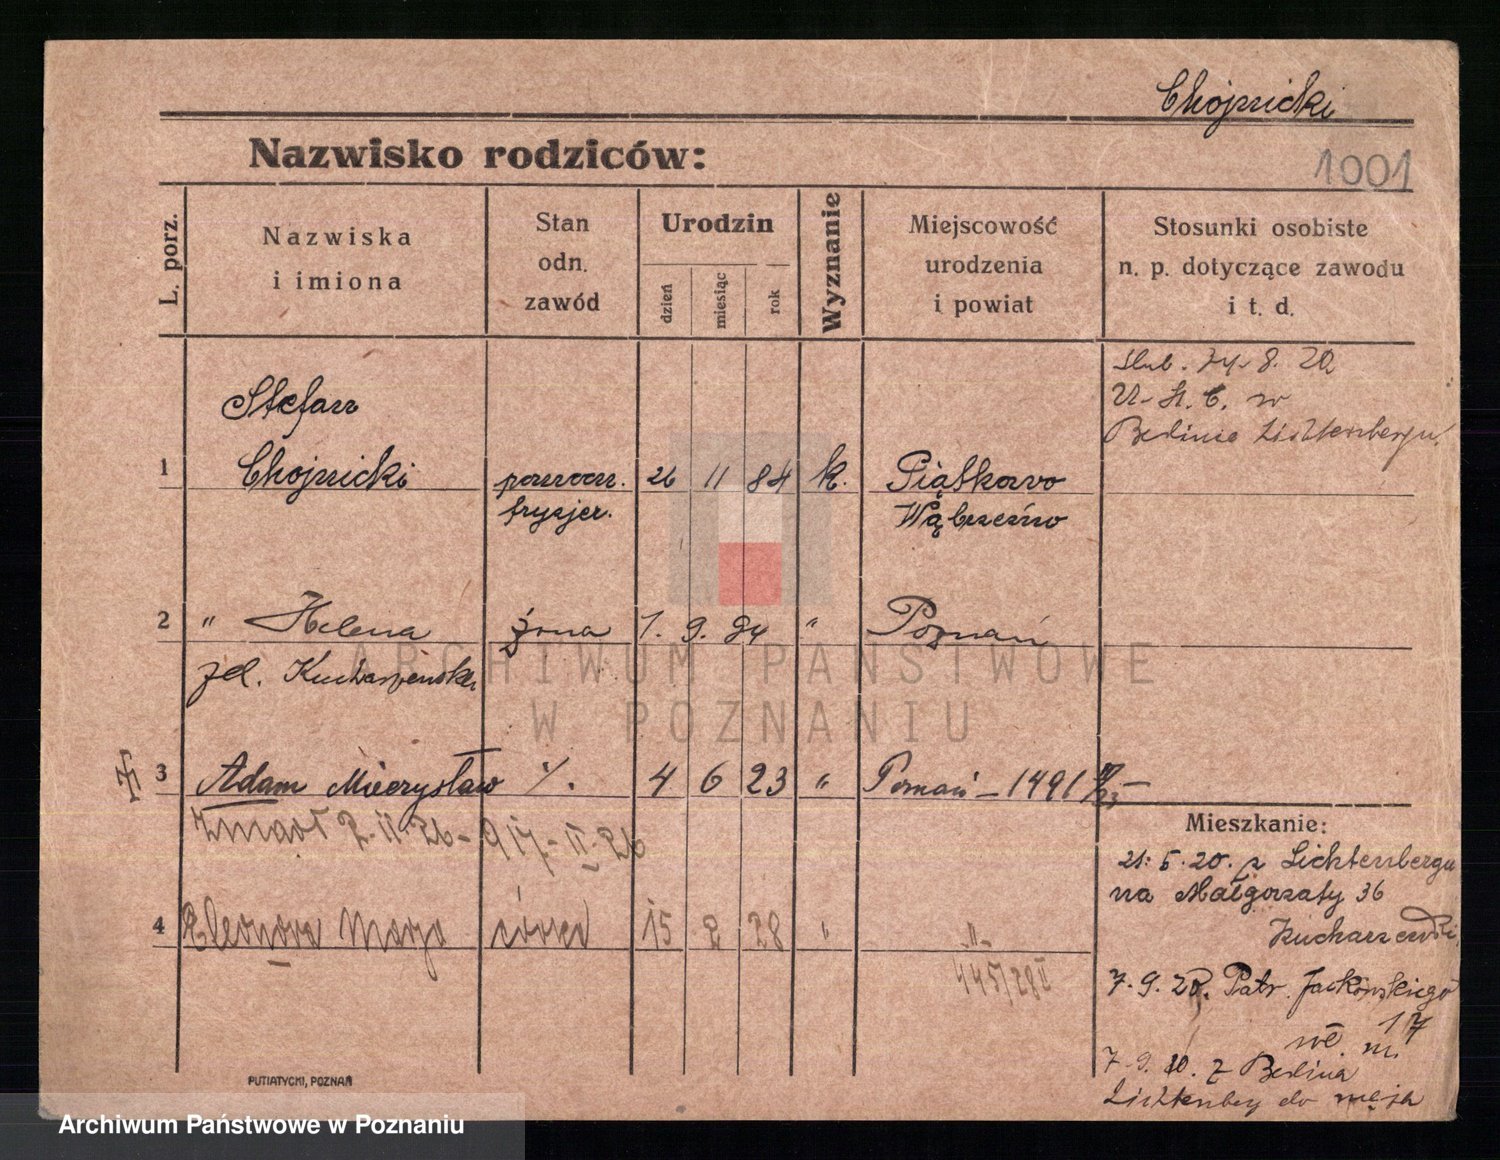 Chojnicki
Nazwisko rodziców:
1001
L. porz.
Nazwiska
i imiona
Stan
odn.
zawód
Urodzin
dzień
miesiąc
rok
Wyznanie
Miejscowość
urodzenia
i powiat
Stosunki osobiste
n. p. dotyczące zawodu
i t. d.
Ślub. 14. 8. 20
U. St. C. w
Berlinie Lichtenbergu.
Stefan
1 Chojnicki pomocn. 26 11 84 k. Piątkowo
fryzjer. Wąbrzeźno
2 " Helena żona 1. 9. 84 " Poznań
zel.
3 Adam Mieczysław ./. 4 6 23 " Poznań - 1491
Zmarł 2-II-26- 917-II-26
4 Eleonora Marja córka 15 2 28 " -"-
445/28 II
Mieszkanie:
21. 5. 20. z Lichtenbergu
na Małgorzaty 36
Kucharzewski.
7. 9. 20. Patr. Jackowskiego
17
wł. m.
7. 9. 20. z Berlina
Lichtenberg do męża
PUTIATYCKI, POZNAŃ
ARCHIWUM PAŃSTWOWE
W POZNANIU
Archiwum Państwowe w Poznaniu